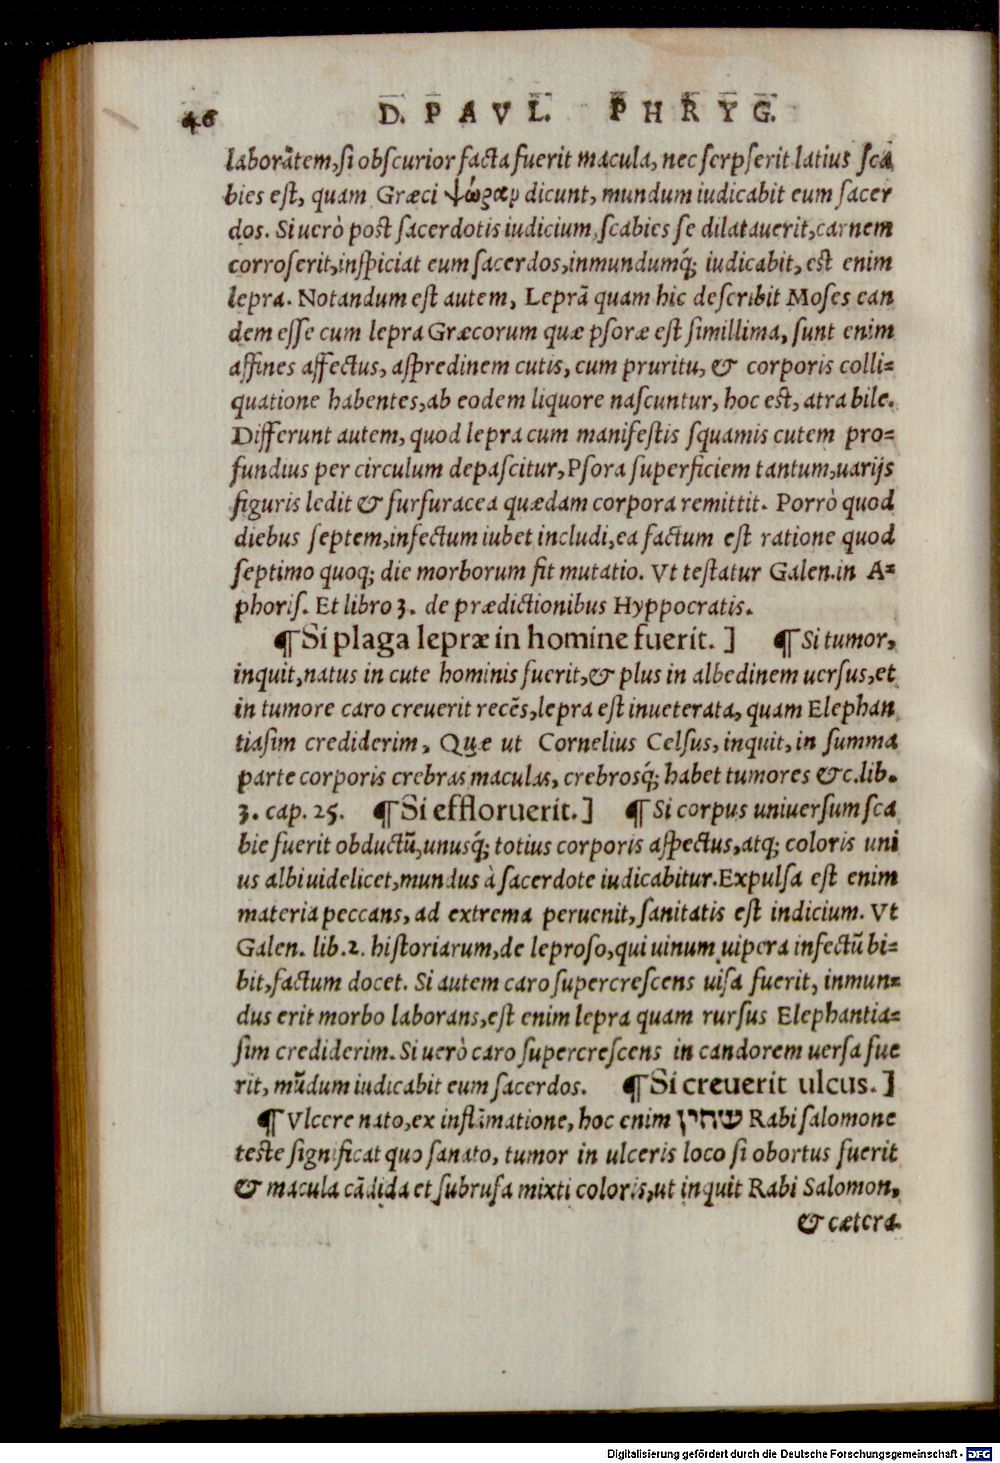 46 D. PAVL. PHRYG.
laborãtem, si obscurior facta fuerit macula, nec serpserit latius sca
bies est, quam Græci ψώραν dicunt, mundum iudicabit eum sacer
dos. Si uerò post sacerdotis iudicium, scabies se dilatauerit, carnem
corroserit, inspiciat eum sacerdos, inmundumq́; iudicabit, est enim
lepra. Notandum est autem, Leprã quam hic describit Moses ean
dem esse cum lepra Græcorum quæ psoræ est simillima, sunt enim
affines affectus, aspredinem cutis, cum pruritu, & corporis colli⸗
quatione habentes, ab eodem liquore nascuntur, hoc est, atra bile.
Differunt autem, quod lepra cum manifestis squamis cutem pro⸗
fundius per circulum depascitur, Psora superficiem tantum, uarijs
figuris ledit & furfuracea quædam corpora remittit. Porrò quod
diebus septem, infectum iubet includi, ea factum est ratione quod
septimo quoq; die morborum fit mutatio. Vt testatur Galen. in A⸗
phoris. Et libro 3. de prædictionibus Hyppocratis.
¶ Si plaga lepræ in homine fuerit. ] ¶ Si tumor,
inquit, natus in cute hominis fuerit, & plus in albedinem uersus, et
in tumore caro creuerit recẽs, lepra est inueterata, quam Elephan
tiasim crediderim, Que ut Cornelius Celsus, inquit, in summa
parte corporis crebras maculas, crebrosq́; habet tumores &c. lib.
3. cap. 25. ¶ Si effloruerit. ] ¶ Si corpus uniuersum sca
bie fuerit obductũ, unusq́; totius corporis aspectus, atq; coloris uni
us albi uidelicet, mundus à sacerdote iudicabitur. Expulsa est enim
materia peccans, ad extrema peruenit, sanitatis est indicium. Vt
Galen. lib. 2. historiarum, de leproso, qui uinum uipera infectũ bi⸗
bit, factum docet. Si autem caro supercrescens uisa fuerit, inmun⸗
dus erit morbo laborans, est enim lepra quam rursus Elephantia⸗
sim crediderim. Si uerò caro supercrescens in candorem uersa fue
rit, mũdum iudicabit eum sacerdos. ¶ Si creuerit ulcus. ]
¶ Vlcere nato, ex inflãmatione, hoc enim שחין Rabi salomone
teste significat quo sanato, tumor in ulceris loco si obortus fuerit
& macula cãdida et subrufa mixti coloris, ut inquit Rabi Salomon,
& cætera.
Digitalisierung gefördert durch die Deutsche Forschungsgemeinschaft - DFG